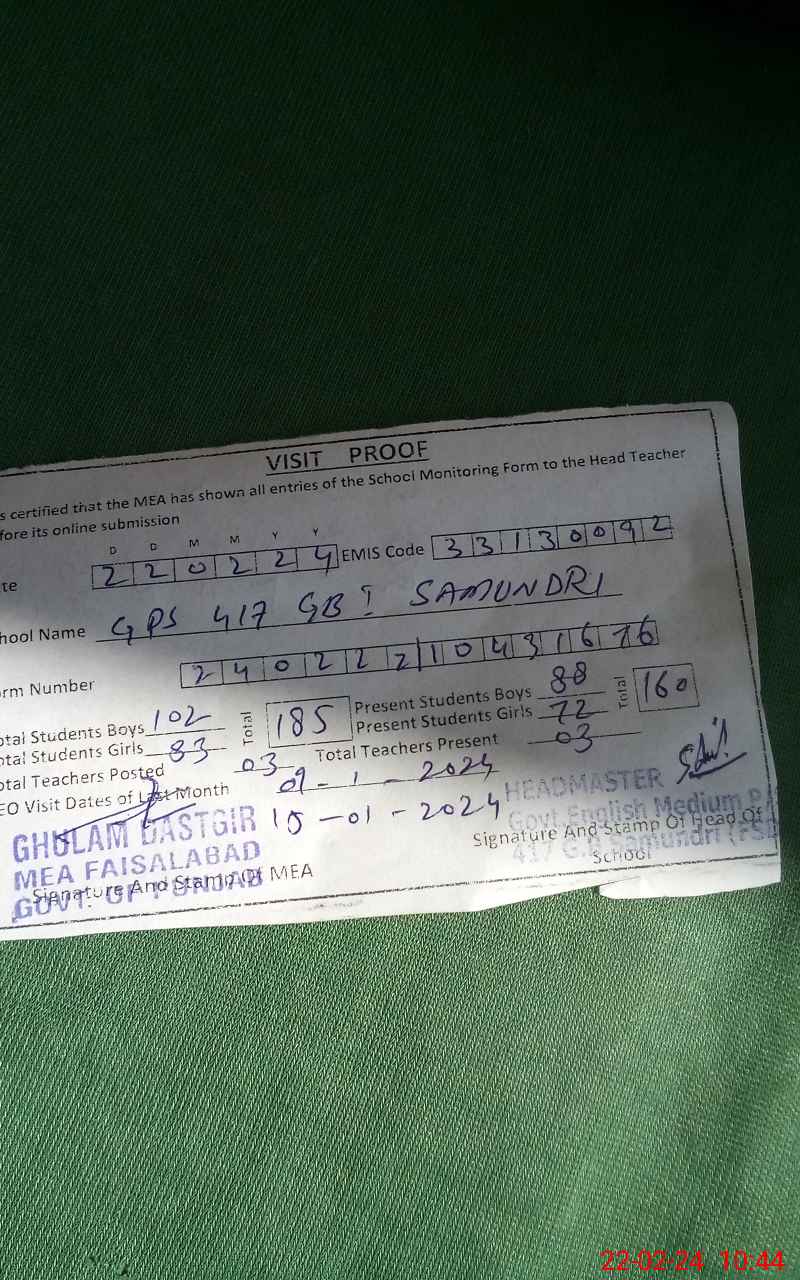 VISIT PROOF
s certified that the MEA has shown all entries of the School Monitoring Form to the Head Teacher
fore its online submission
D D M M Y Y
te 220224 EMIS Code 33130092
hool Name GPS 417 GB I SAMUNDRI
rm Number
otal Students Boys 102 Total 185 Present Students Boys 88 Total 160
otal Students Girls 83 Present Students Girls 72
otal Teachers Posted 03 Total Teachers Present 03
EO Visit Dates of Last Month 09-1-2024
15-01-2024
GHULAM DASTGIR
MEA FAISALABAD
GOVT. OF PUNJAB
Signature And Stamp Of MEA
HEADMASTER
Govt. English Medium P/
417 G.B Samundri (FSD
Signature And Stamp Of Head Of
School
22-02-24 10:44